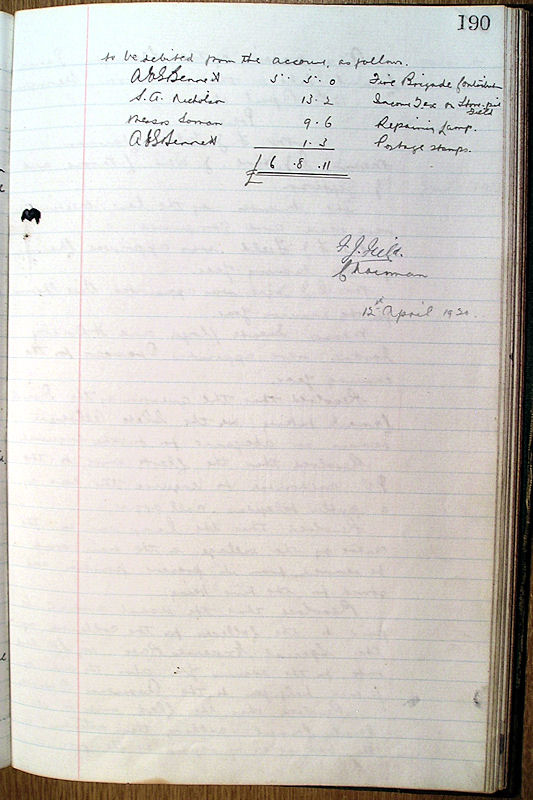 190
to be debited from the account, as follows.
A G S Bennett 5 " 5 . 0 Fire Brigade Contribution
S. A. Nicholson 13 . 2 Income Tax on Stone-pit Field
Messrs 9 . 6 Repairing Lamp.
A G S Bennett 1 . 3 Postage stamps.
£ 6 . 8 . 11
F. J. Field.
Chairman
12th April 1920.